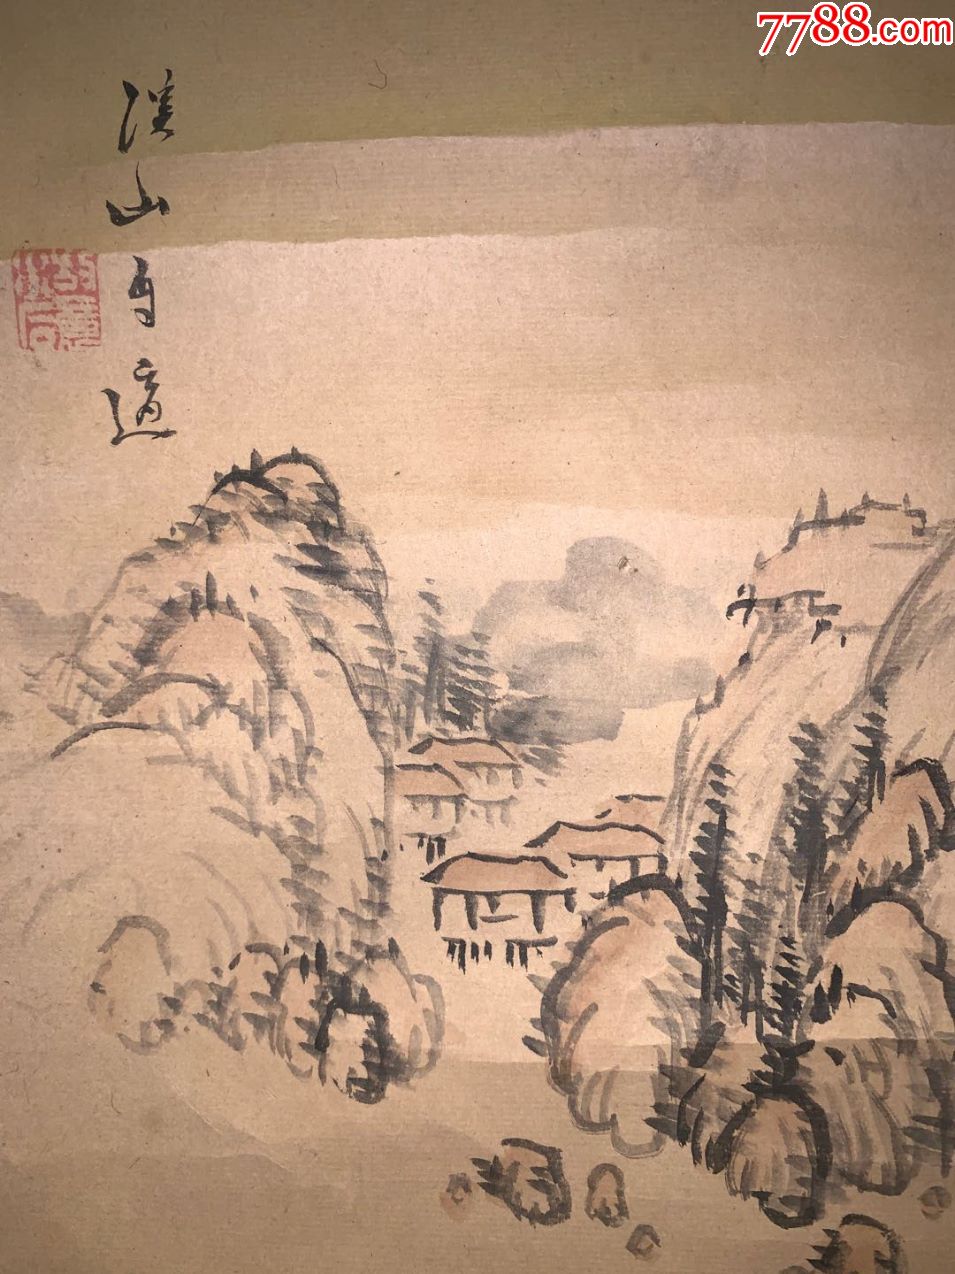 7788.com
溪山自適